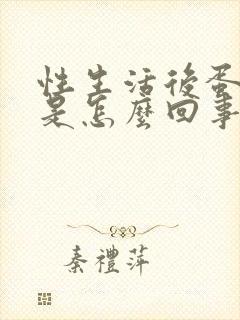 性生活後蛋
是怎麼回事
秦禮萍